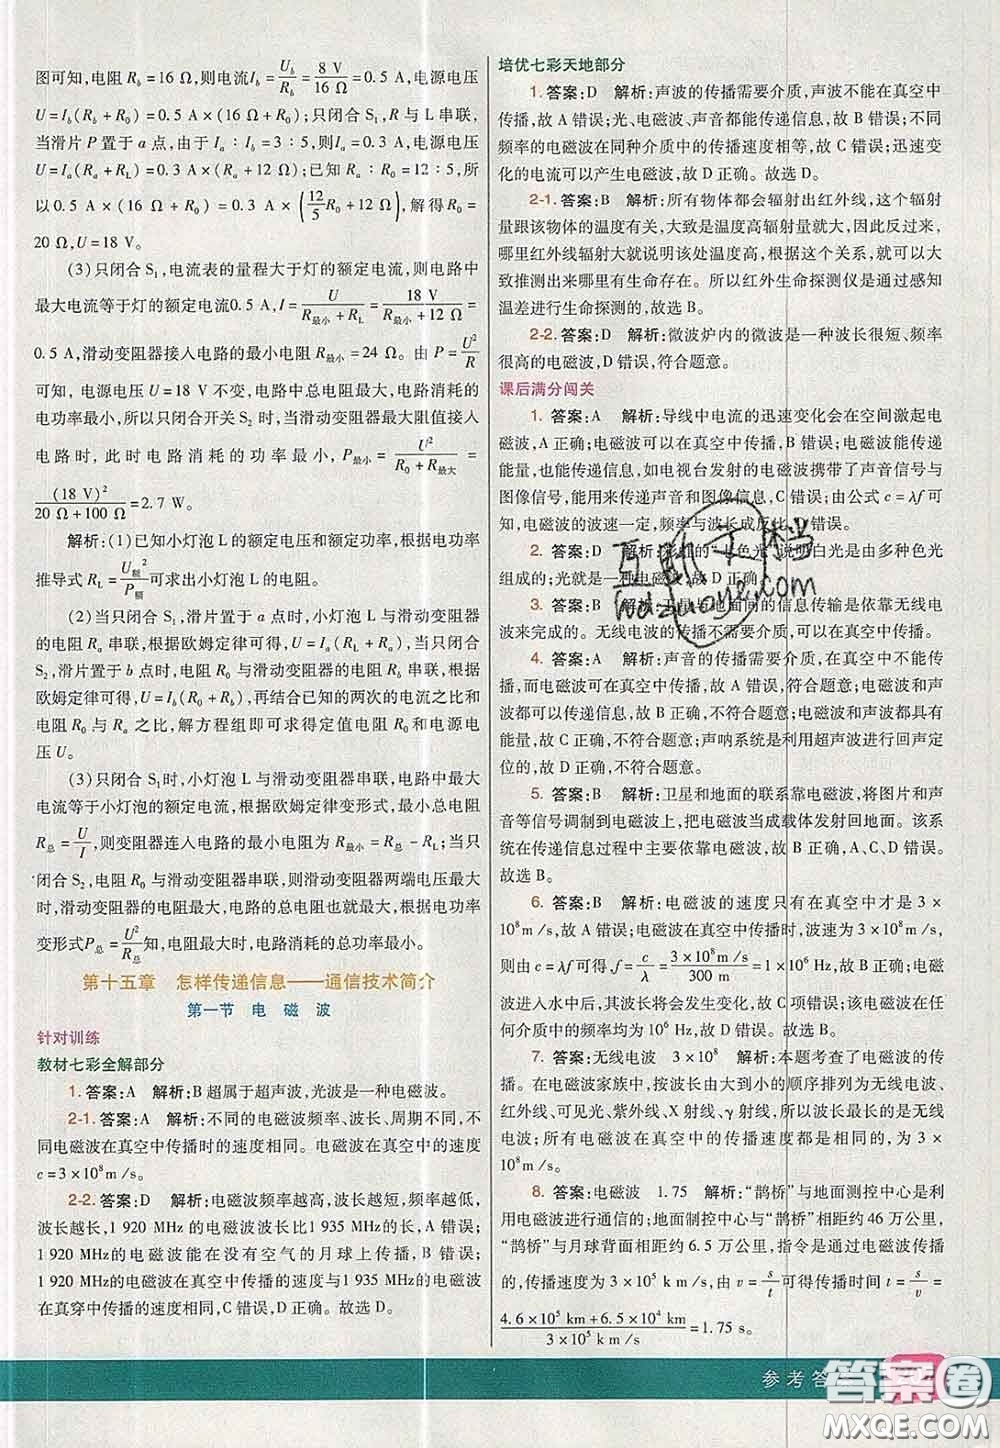 图可知,电阻 R_b=16 Ω,则电流I_b=U_b/R_b=8 V/16 Ω=0.5 A,电源电压
U=I_b(R_b+R_0)=0.5 A×(16 Ω+R_0);只闭合 S₁,R 与 L 串联,
当滑片 P 置于 a 点,由于 I_a∶I_b=3∶5,则I_a=0.3 A,电源电压
U=I_a(R_a+R_L)=0.3 A×(R_a+12 Ω);已知 R_a∶R_0=12∶5,所
以0.5 A×(16 Ω+R_0)=0.3 A×(12/5R_0+12 Ω),解得 R_0=
20 Ω,U=18 V。
(3)只闭合 S₁,电流表的量程大于灯的额定电流,则电路中
最大电流等于灯的额定电流0.5 A,I=U/(R最小+R_L)=18 V/(R最小+12 Ω)=
0.5 A,滑动变阻器接入电路的最小电阻 R最小=24 Ω。由 P=U²/R
可知,电源电压 U=18 V 不变,电路中总电阻最大,电路消耗的
电功率最小,所以只闭合开关 S₂ 时,当滑动变阻器最大值接入
电路时,此时电路消耗的功率最小,P最小=U²/(R_0+R最大)=
(18 V)²/(20 Ω+100 Ω)=2.7 W。
解析:(1)已知小灯泡 L 的额定电压和额定功率,根据功率
推导式 R_L=U额²/P额可求出小灯泡 L 的电阻。
(2)当只闭合 S₁,滑片置于 a 点时,小灯泡 L 与滑动变阻器
的电阻 R_a 串联,根据欧姆定律可得,U=I_a(R_a+R_L);当只闭合
S₂,滑片置于 b 点时,电阻 R_0 与滑动变阻器的电阻 R_b 串联,根据
欧姆定律可得,U=I_b(R_0+R_b),再结合已知的两次的电流之比和
电阻 R_0 与 R_a 之比,解方程组即可求得定值电阻 R_0 和电源电
压 U。
(3)只闭合 S₁时,小灯泡 L 与滑动变阻器串联,电路中最大
电流等于小灯泡的额定电流,根据欧姆定律可求得总电阻
R总=U/I,则变阻器连入电路的最小电阻为 R最小=R总-R_L;当只
闭合 S₂,电阻 R_0 与滑动变阻器串联,滑动变阻器两端电压达到
最大值时,滑动变阻器的电阻最大,电路的总电阻也就最大,根据
变形式P总=U²/R总知,电阻最大时,电路消耗的总功率最小。
第十五章 怎样传递信息——通信技术简介
第一节 电 磁 波
针对训练
教材七彩全解部分
1. 答案:A 解析:B 超属于超声波,光波是一种电磁波。
2-1. 答案:A 解析:不同的电磁波频率、波长、周期不同,不
同电磁波在真空中传播时的速度相同。电磁波在真空中的速度
c=3×10⁸m/s。
2-2. 答案:D 解析:电磁波频率越高,波长越短,频率越低,
波长越长,1 920 MHz的电磁波波长比1 935 MHz的长,A 错误;
1 920 MHz 的电磁波能在没有空气的月球上传播,B 错误;
1 920 MHz的电磁波在真空中传播的速度与1 935 MHz的电磁波
在真穿中传播的速度相同,C错误,D 正确。故选 D。
培优七彩天地部分
1. 答案:D 解析:声波的传播需要介质,声波不能在真空中
传播,故 A 错误;光、电磁波、声音都能传递信息,故 B 错误;不同
频率的电磁波在同种介质中的传播速度相等,故 C 错误;迅速变
化的电流可以产生电磁波,故 D 正确。故选 D。
2-1. 答案:B 解析:所有物体都会辐射出红外线,这个辐射
量跟该物体的温度有关,大致是温度高辐射量就大,因此反过来,
哪里红外线辐射大就说明该处温度高,根据这一原理,温差较大
处大致推测出来哪里有生命存在。所以红外生命探测仪是通过感知
温差进行生命探测的,故选 B。
2-2. 答案:D 解析:微波炉内的微波是一种波长很短、频率
很高的电磁波,D 错误,符合题意。
课后满分闯关
1. 答案:A 解析:导线中电流的迅速变化会在空间激起电
磁波,A 正确;电磁波可以在真空中传播,B 错误;电磁波能传递
能量,也能传递信息,如电视台发射的电磁波携带了声音信号与
图像信号,能用来传递声音和图像信息,C 错误;由公式 c=λf 可
知,电磁波的波速一定,频率与波长成反比,D 错误。
2. 答案:D 解析:彩虹的“七色光”说明白光是由多种色光
组成的;光就是一种电磁波,故 D 正确。
3. 答案:B 解析:卫星与地面间的信息传输是依靠无线电
波来完成的。无线电波的传播不需要介质,可以在真空中传播。
4. 答案:A 解析:声音的传播需要介质,在真空中不能传
播,而电磁波可在真空中传播,故 A 错误,符合题意;电磁波和声
波都可以传递信息,故 B 正确,不符合题意;电磁波和声波都有一
定的波速,故 C 正确,不符合题意;声呐系统是利用超声波进行回声定
位的,故 D 正确,不符合题意。
5. 答案:B 解析:卫星和地面的联系靠电磁波,将图片和声
音等信号调制到电磁波上,把电磁波当成载体发射回地面。该系
统在传递信息过程中主要依靠电磁波,B 正确,A、C、D 错误。
故选 B。
6. 答案:B 解析:电磁波的速度只有在真空中才是 3×
10⁸m/s,故 A 错误;电磁波在真空中传播时,波速为 3×10⁸m/s,
则由 c=λf 可知,其频率 f=c/λ=3×10⁸m/s/300 m=10⁶ Hz;当此电磁
波进入水中后,其波长将会发生变化,故 C 错误;该电磁波在任
何介质中的频率均为 10⁶ Hz,故 B 正确,D 错误。故选 B。
7. 答案:无线电波 3×10⁸ 解析:本题考查了电磁波的传
播。在电磁波家族中,按波长从大到小的顺序排列为无线电波、
红外线、可见光、紫外线、X 射线、γ 射线,其中波长最长的是无线
电波;所有电磁波在真空中传播速度都是相同的,为 3×
10⁸m/s。
8. 答案:电磁波 1.75 解析:“鹊桥”与地面测控中心是利
用电磁波进行通信的;地面控制中心与“鹊桥”相距约 46 万公里,
“鹊桥”与月球背面相距约 6.5 万公里,指令是通过电磁波传播
的,传播速度为 3×10⁵ km/s,由 v=s/t可得传播时间 t=s/v=
4.6×10⁵ km+6.5×10⁴ km/3×10⁵ km/s=1.75 s。
参考答
答案圈
MXQE.COM